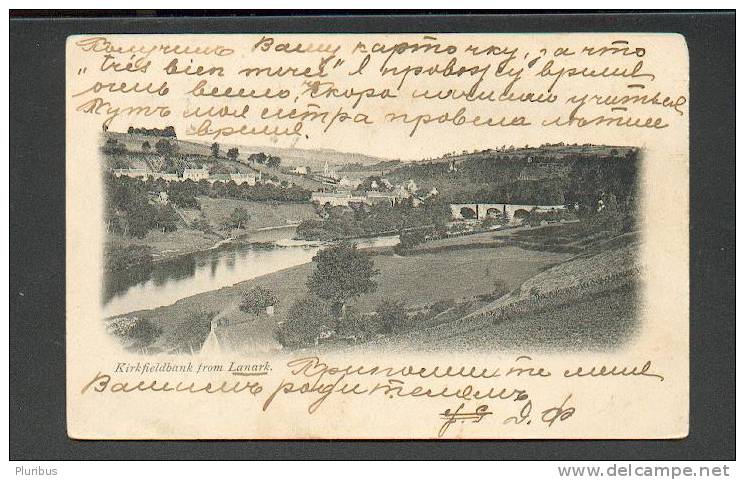 Получилъ Вашу карточку, за что
„très bien merci" Я провожу время
очень весело, Скоро начинаю учиться
Какъ моя сестра провела лѣтнее
время?
Kirkfieldbank from Lanark.
Припомните меня
Вашимъ родителямъ
Д. Ф
Pluribus
www.delcampe.net